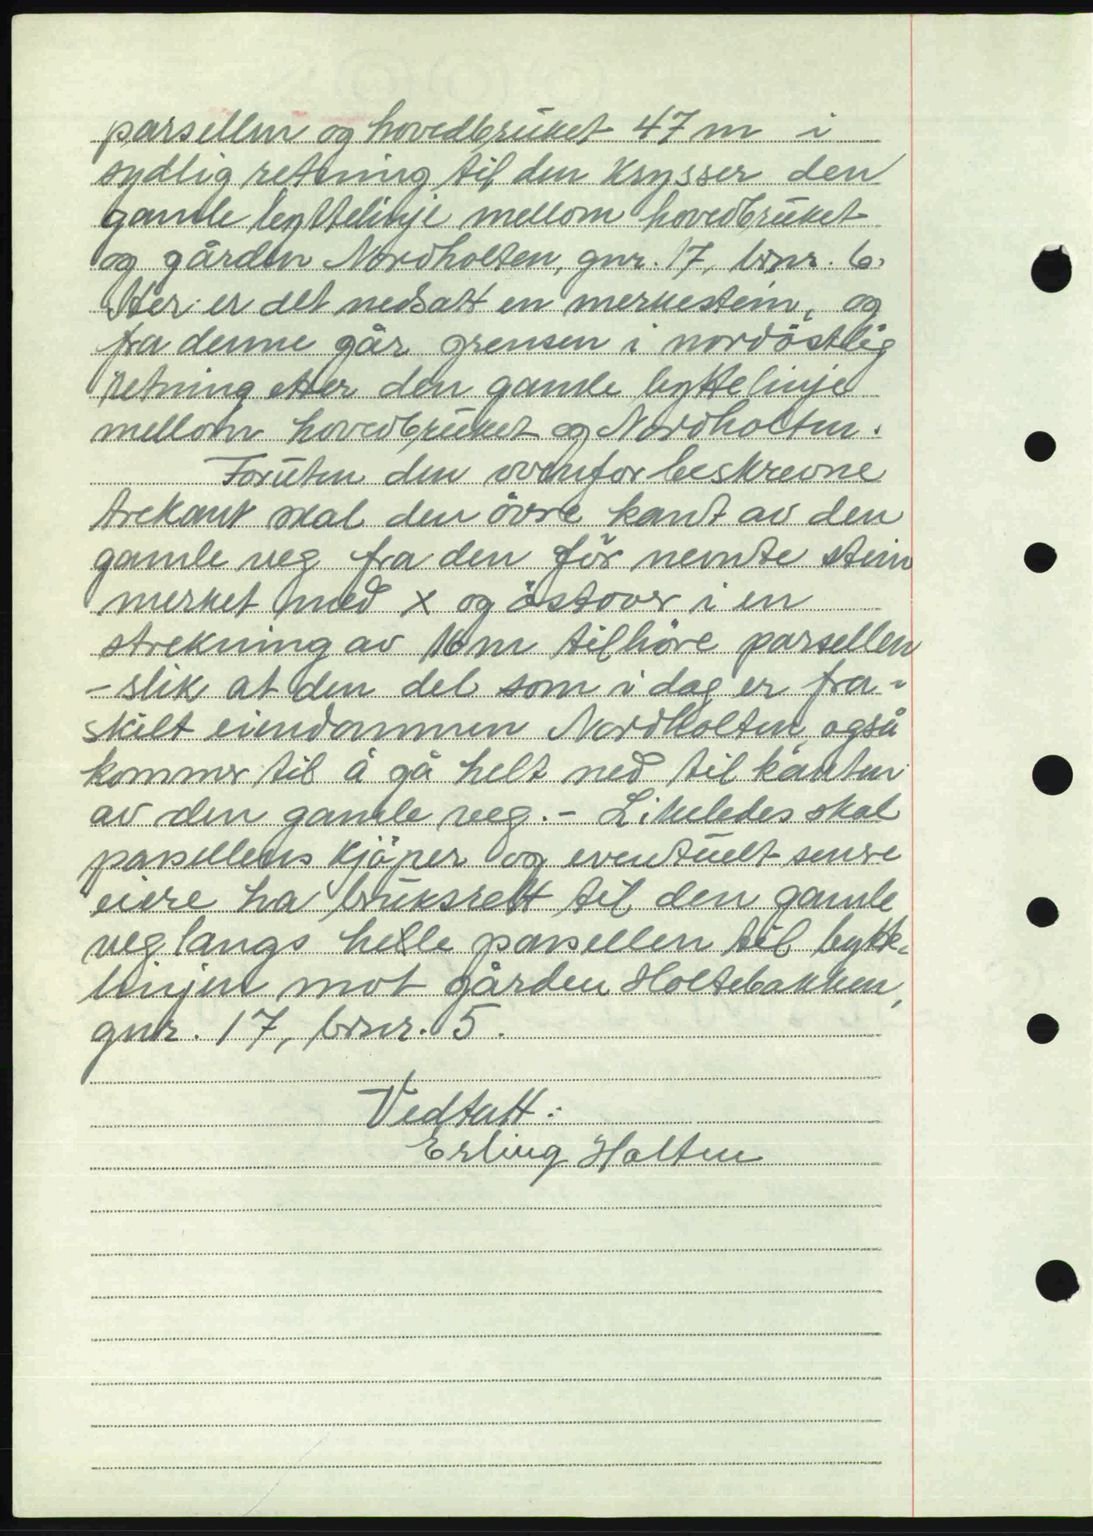 parsellen og hovedbruket 47 m i
sydlig retning til den krysser den
gamle byttelinje mellom hovedbruket
og gården Nordholten, gnr. 17, brnr. 6.
Her er det nedsatt en merkestein, og
fra denne går grensen i nordöstlig
retning etter den gamle byttelinje
mellom hovedbruket og Nordholten.
Foruten den ovenfor beskrevne
trekant skal den övre kant av den
gamle veg fra den för nevnte stein
merket med x og östover i en
strekning av 16 m tilhöre parsellen
- slik at den del som i dag er fra-
skilt eiendommen Nordholten også
kommer til å gå helt ned til kanten
av den gamle veg. - Likeledes skal
parsellens kjöper og eventuelt senere
eiere ha bruksrett til den gamle
veg langs hele parsellen til bytte-
linjen mot gården Holtebakken,
gnr. 17, brnr. 5.
Vedtatt:
Erling Holten